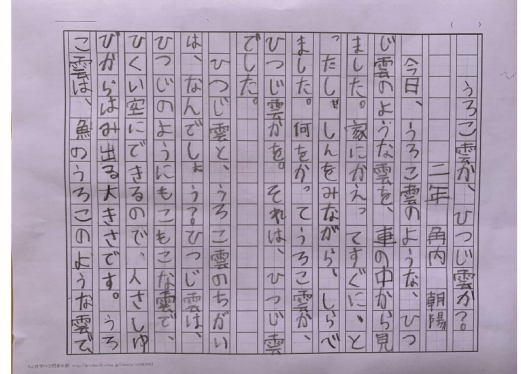 うろこ雲か、ひつじ雲か?
二年 角内 朝陽
今日、うろこ雲のような、ひつ
じ雲のような雲を、車の中から見
ました。家にかえってすぐに、と
ったしゃしんをみながら、しらべ
ました。何をかってうろこ雲か、
ひつじ雲かを。それは、ひつじ雲
でした。
ひつじ雲と、うろこ雲のちがい
は、なんでしょう?ひつじ雲は、
ひつじのようにもこもこな雲で、
ひくい空にできるので、人さしゆ
びからはみ出る大きさです。うろ
こ雲は、魚のうろこのような雲で